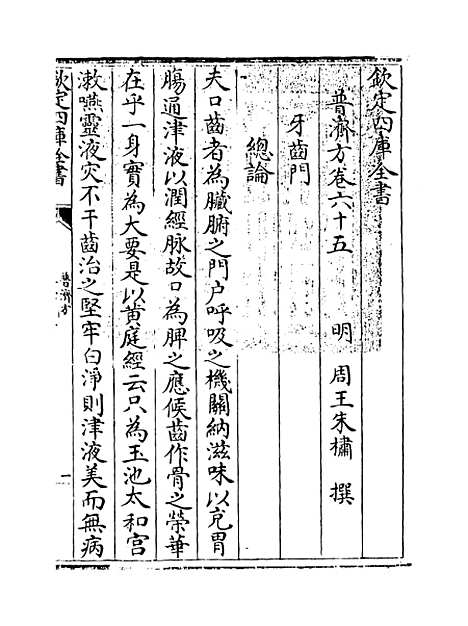 欽定四庫全書
普濟方卷六十五　明　周王朱橚　撰
牙齒門
總論
夫口齒者為臟腑之門户呼吸之機關納滋味以充胃
腸通津液以潤經脉故口為脾之應候齒作骨之榮華
在乎一身實為大要是以黄庭經云只為玉池太和宫
漱嚥靈液灾不干齒治之堅牢白淨則津液美而無病
欽定四庫全書
普濟方
一